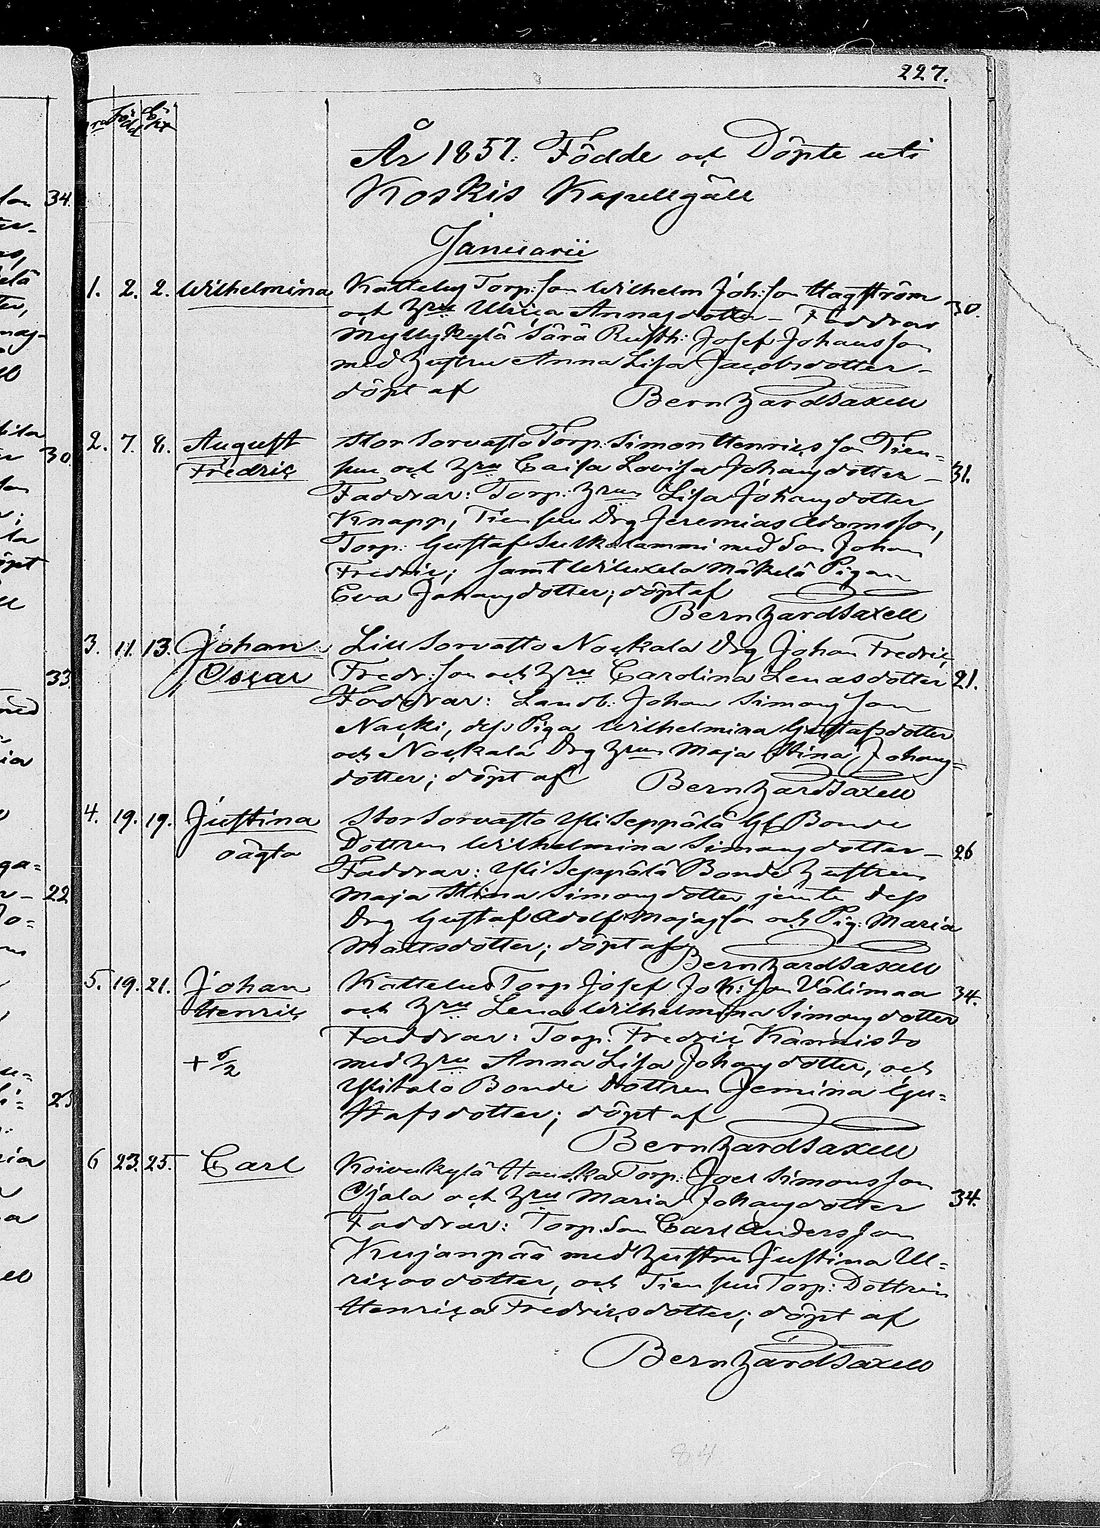 227.
Född
Döpt
År 1857. Födde och Döpte uti
Koskis Kapellgäll
Januarii
1. 2. 2. Wilhelmina Kattelus Torp: Son Wilhelm Joh:son Hagström 30.
och hru Ulrica Annasdotter – Faddrar
Myllykylä Särä Rusth: Josef Johansson
med hustru Anna Lisa Jacobsdotter –
döpt af Bernhard Saxell
2. 7. 8. August Stor Sorvasto Torp: Simon Henricsson Tien-
Fredric suu och hru Caisa Lovisa Johansdotter – 31.
Faddrar: Torp: hrun Lisa Johansdotter
Knapp, Tiensuu Drg Jeremias Adamsson,
Torp: Gustaf Sulkalammi med Son Johan
Fredric; samt Wiluxela Näkelä Pigan
Eva Johansdotter; döpt af
Bernhard Saxell
3. 11. 13. Johan Lill Sorvasto Nockala Drg Johan Fredric
Oscar Fredr:son och hru Carolina Lenasdotter 21.
Faddrar: Landb: Johan Simonsson
Nacki, dess Piga Wilhelmina Gustafsdotter
och Nockala Drg hrun Maja Stina Johans-
dotter; döpt af Bernhard Saxell
4. 19. 19. Justina Stor Sorvasto Yli Seppälä Bonde
oägta Dottren Wilhelmina Simonsdotter – 26
Faddrar: Yli Seppälä Bonde hustrun
Maja Stina Simonsdotter jemte dess
Drg Gustaf Adolf Majasson och Pig: Maria
Mattsdotter; döpt af
Bernhard Saxell
5. 19. 21. Johan Kattelus Torp: Josef Joh:son Välimaa 34.
Henric och hru Lena Wilhelmina Simonsdotter
Faddrar: Torp: Fredric Kannisto
+ 5/2 med hru Anna Lisa Johansdotter, och
Ylitalo Bonde Dottren Jemina Gu-
stafsdotter; döpt af
Bernhard Saxell
6 23. 25. Carl Koivukylä Haucka Torp: Joel Simonsson
Ojala och hru Maria Johansdotter 34.
Faddrar: Torp: Son Carl Andersson
Kujanpää med hustru Justina Ul-
ricasdotter, och Tiensuu Torp: Dottren
Henrica Fredricsdotter; döpt af
Bernhard Saxell
84